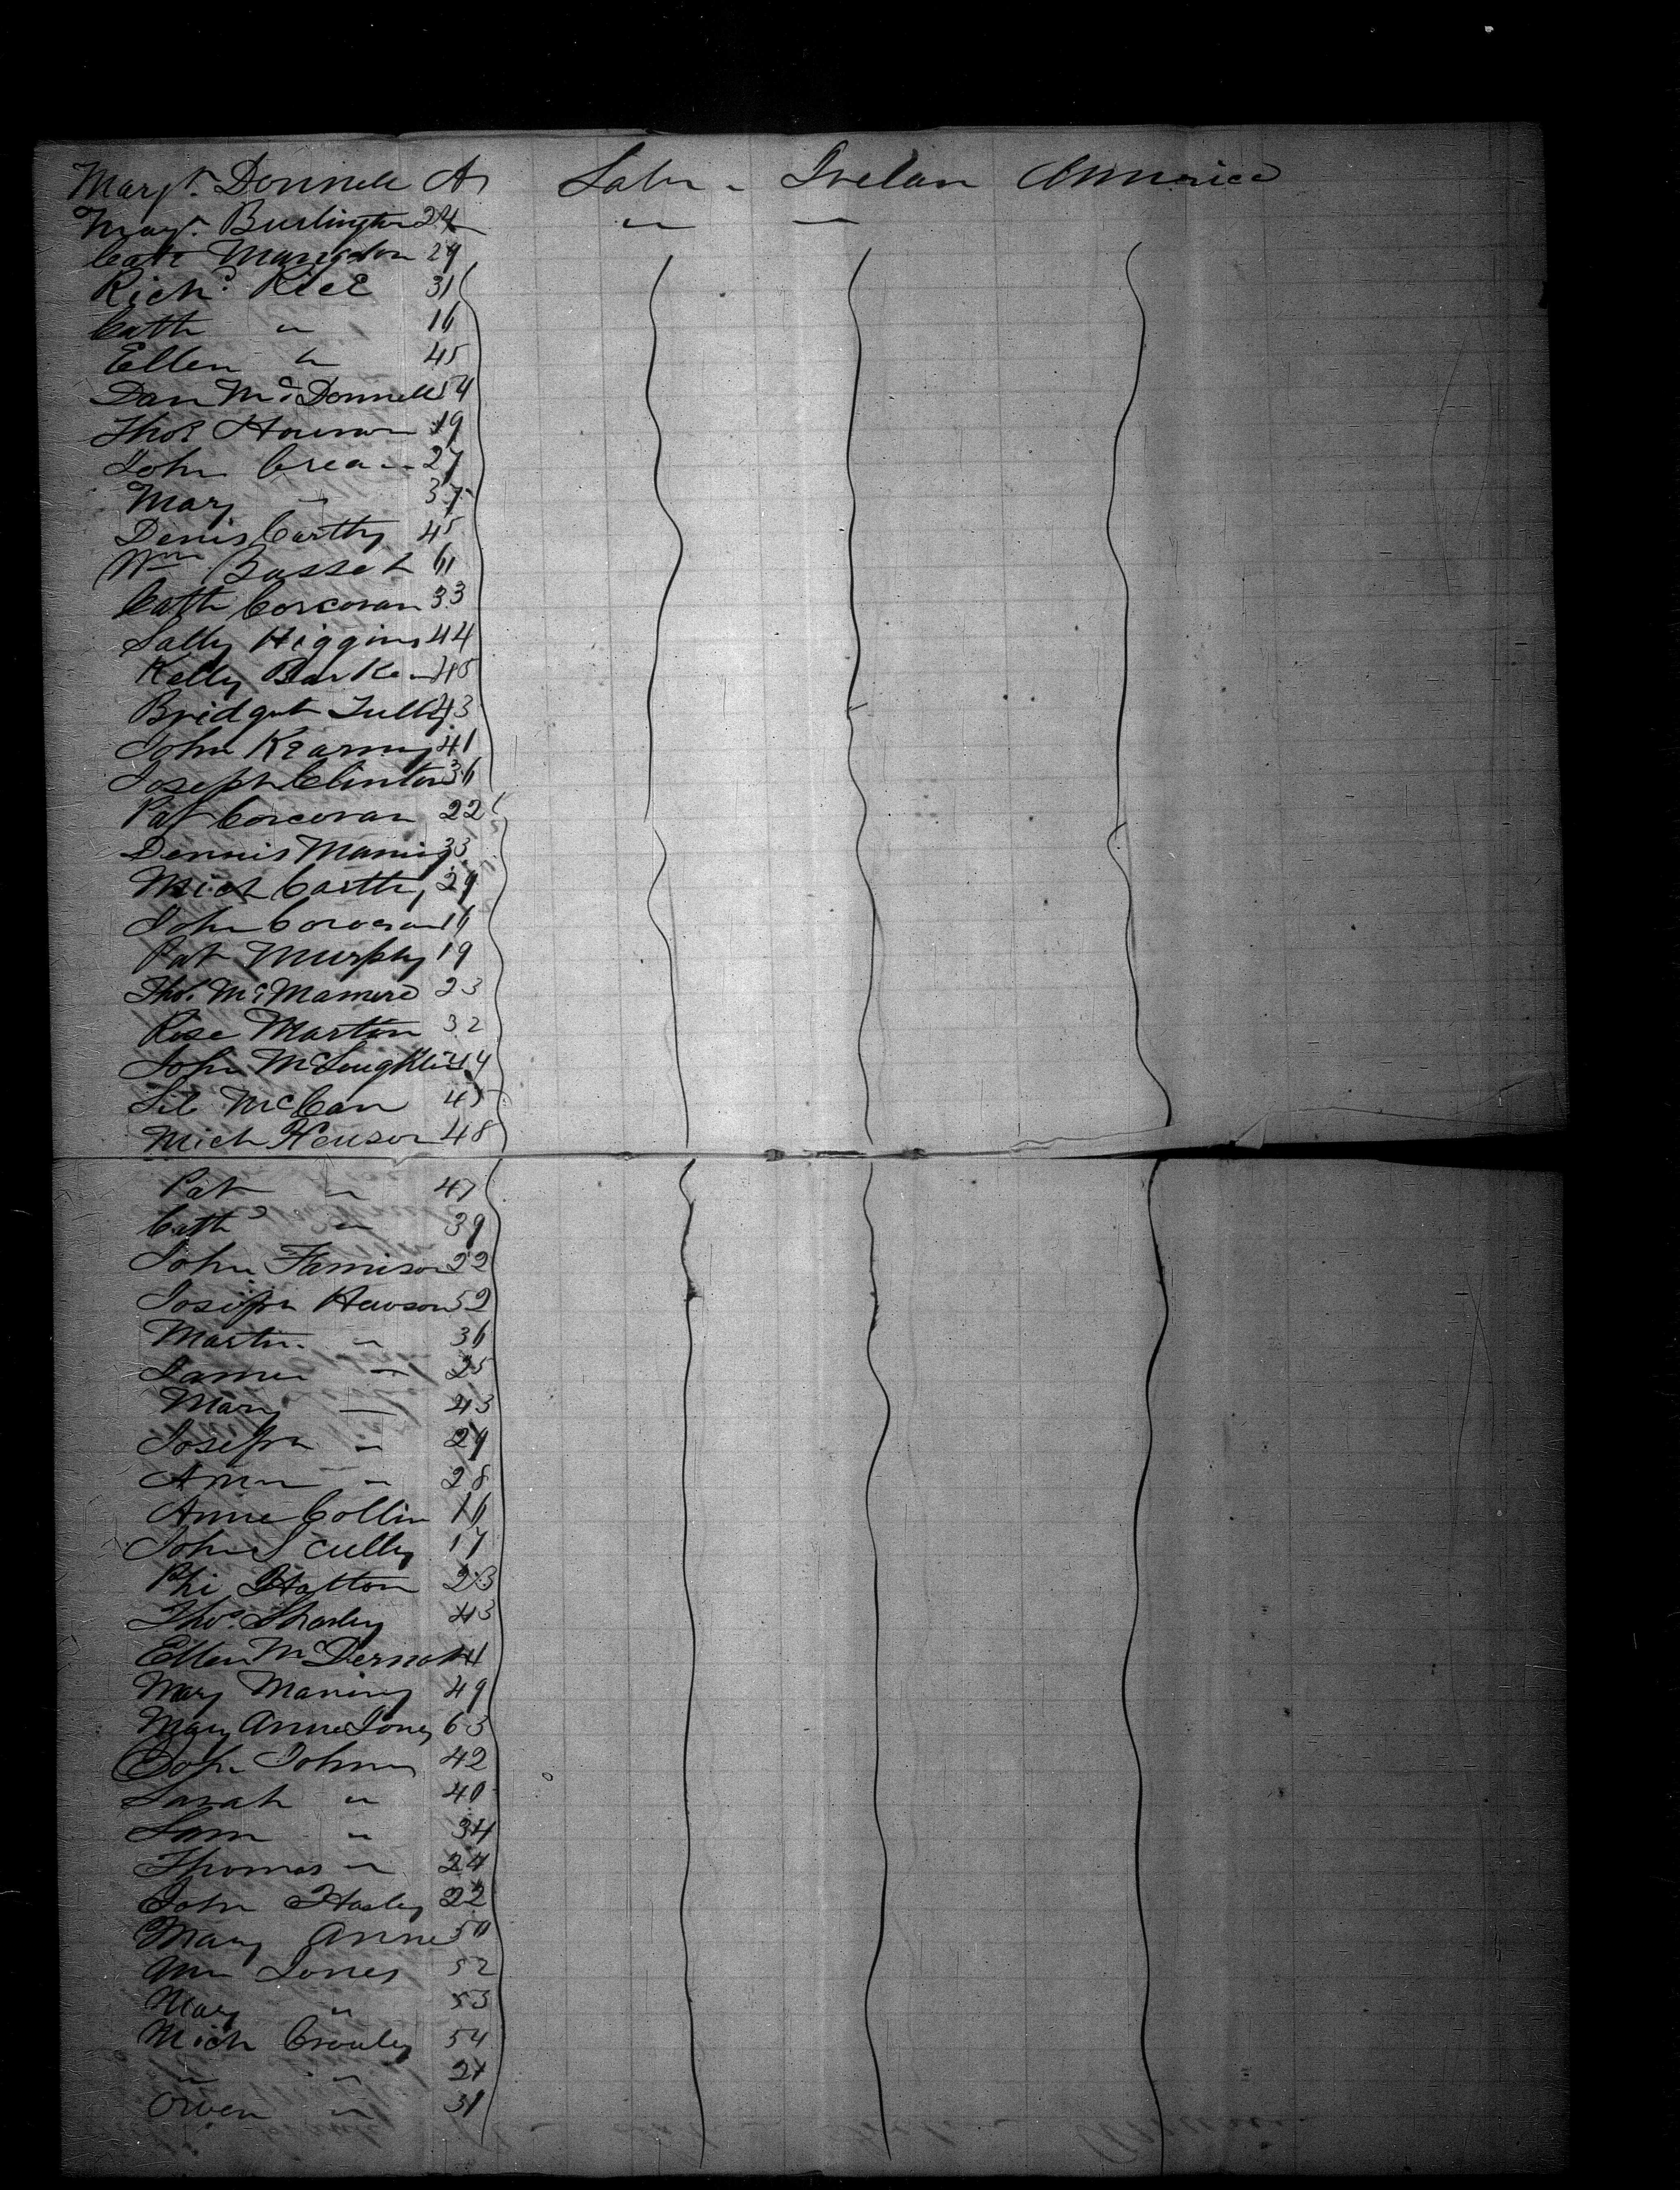 Margt. Donnell Labr - Irelan America
Margt. Burlington 24 " "
Cath 29
Richd. Rice 31
Cath " 16
Ellen " 45
Dan McDonnell 54
Thos 19
John Crea 27
Mary " 37
Denis Carthy 45
Wm Basset 61
Cath Corcoran 33
Sally Higgins 44
Kelly
Bridget Tully 43
John Kearny 41
Joseph Clinton 36
Pat Corcoran 22
Dennis Maning 33
Mich Carthy 29
John 16
Pat Murphy 19
Thos. McMamere 23
Rose Martin 32
John McLoughlin 44
McCan 45
Mich Hewson 48
Pat " 47
Cath " 39
John 22
Joseph Hewson 52
Martin " 36
James " 25
Mary — 43
Joseph " 29
Ann " 28
Anne Collin 16
John Scully 17
Phi Hatton 23
Thos. Sharley 43
Ellen McDermott
Mary Maning 49
Mary Anne Jones 63
John 42
Sarah " 40
Sam " 34
Thomas " 24
John Hasley 22
Mary Anne 50
Ann Jones 52
Mary " 53
Mich Crowley 54
" " 21
Owen " 31